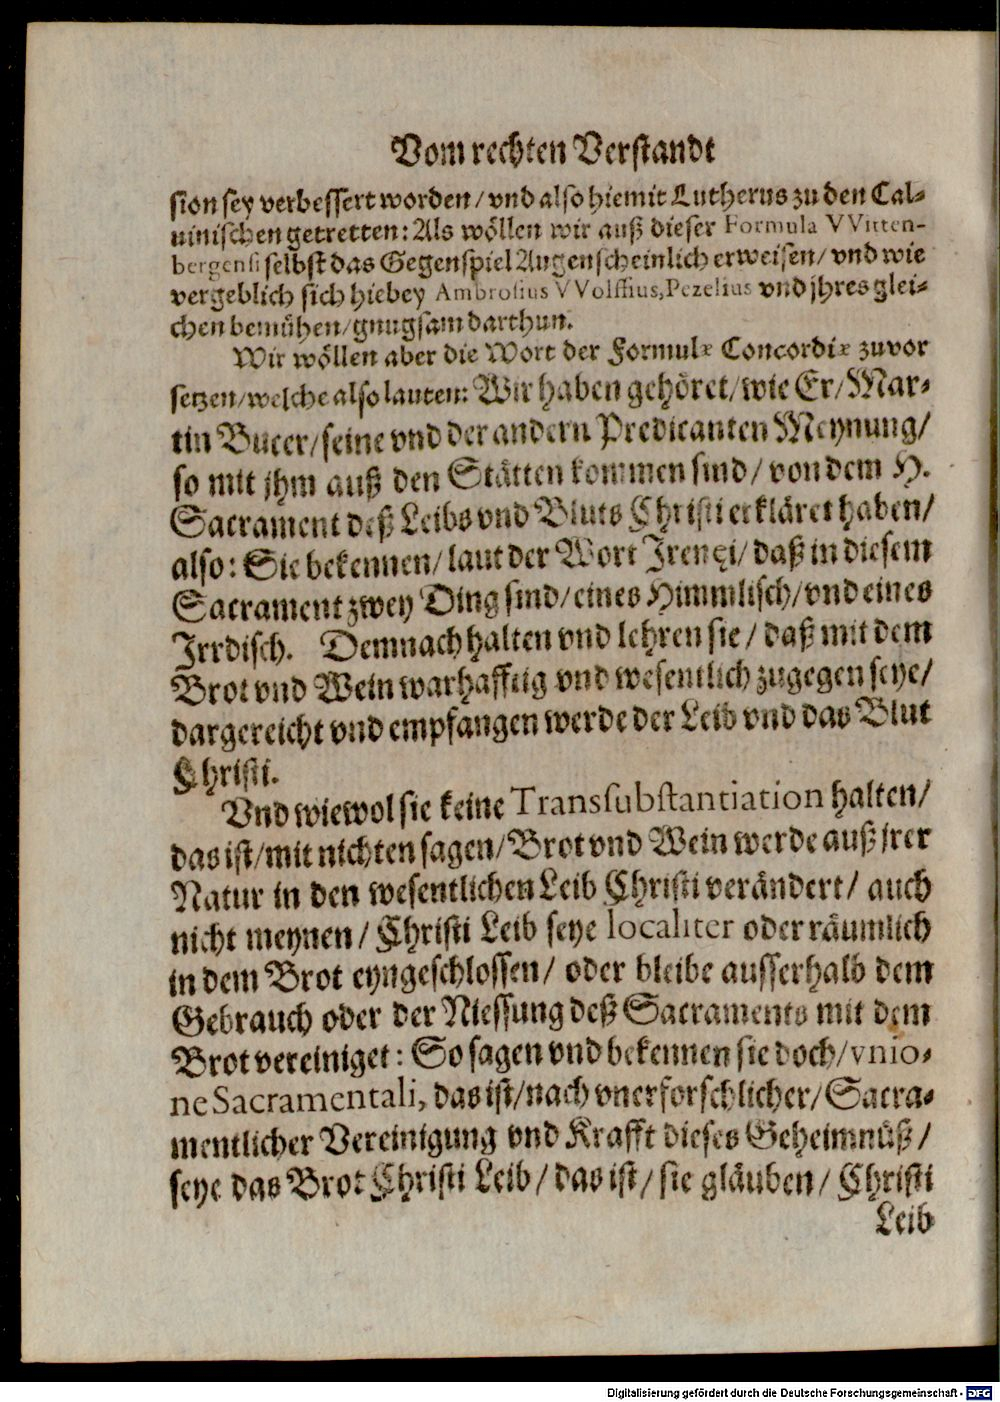 Vom rechten Verstandt
sion sey verbessert worden/ vnd also hiemit Lutherus zu den Cal-
uinischen getretten: Als wöllen wir auß dieser Formula VVitten-
bergensi selbst das Gegenspiel Augenscheinlich erweisen/ vnd wie
vergeblich sich hiebey Ambrosius VVolffius, Pezelius vnd jhres glei-
chen bemühen/ gnugsam darthun.
Wir wöllen aber die Wort der Formulæ Concordiæ zuvor
setzen/ welche also lauten: Wir haben gehöret/ wie Er/ Mar-
tin Bucer/ seine vnd der andern Predicanten Meynung/
so mit jhm auß den Stätten kommen sind/ von dem H.
Sacrament deß Leibs vnd Bluts Christi erkläret haben/
also: Sie bekennen/ laut der Wort Irenęi/ daß in diesem
Sacrament zwey Ding sind/ eines Himmlisch/ vnd eines
Irrdisch. Demnach halten vnd lehren sie/ daß mit dem
Brot vnd Wein warhafftig vnd wesentlich zugegen seye/
dargereicht vnd empfangen werde der Leib vnd das Blut
Christi.
Vnd wiewol sie keine Transsubstantiation halten/
das ist/ mit nichten sagen/ Brot vnd Wein werde auß jrer
Natur in den wesentlichen Leib Christi verändert/ auch
nicht meynen/ Christi Leib seye localiter oder räumlich
in dem Brot eyngeschlossen/ oder bleibe ausserhalb dem
Gebrauch oder der Niessung deß Sacraments mit dem
Brot vereiniget: So sagen vnd bekennen sie doch/ vnio-
ne Sacramentali, das ist/ nach vnerforschlicher/ Sacra-
mentlicher Vereinigung vnd Krafft dieses Geheimnüß/
seye das Brot Christi Leib/ das ist/ sie gläuben/ Christi
Leib
Digitalisierung gefördert durch die Deutsche Forschungsgemeinschaft - DFG